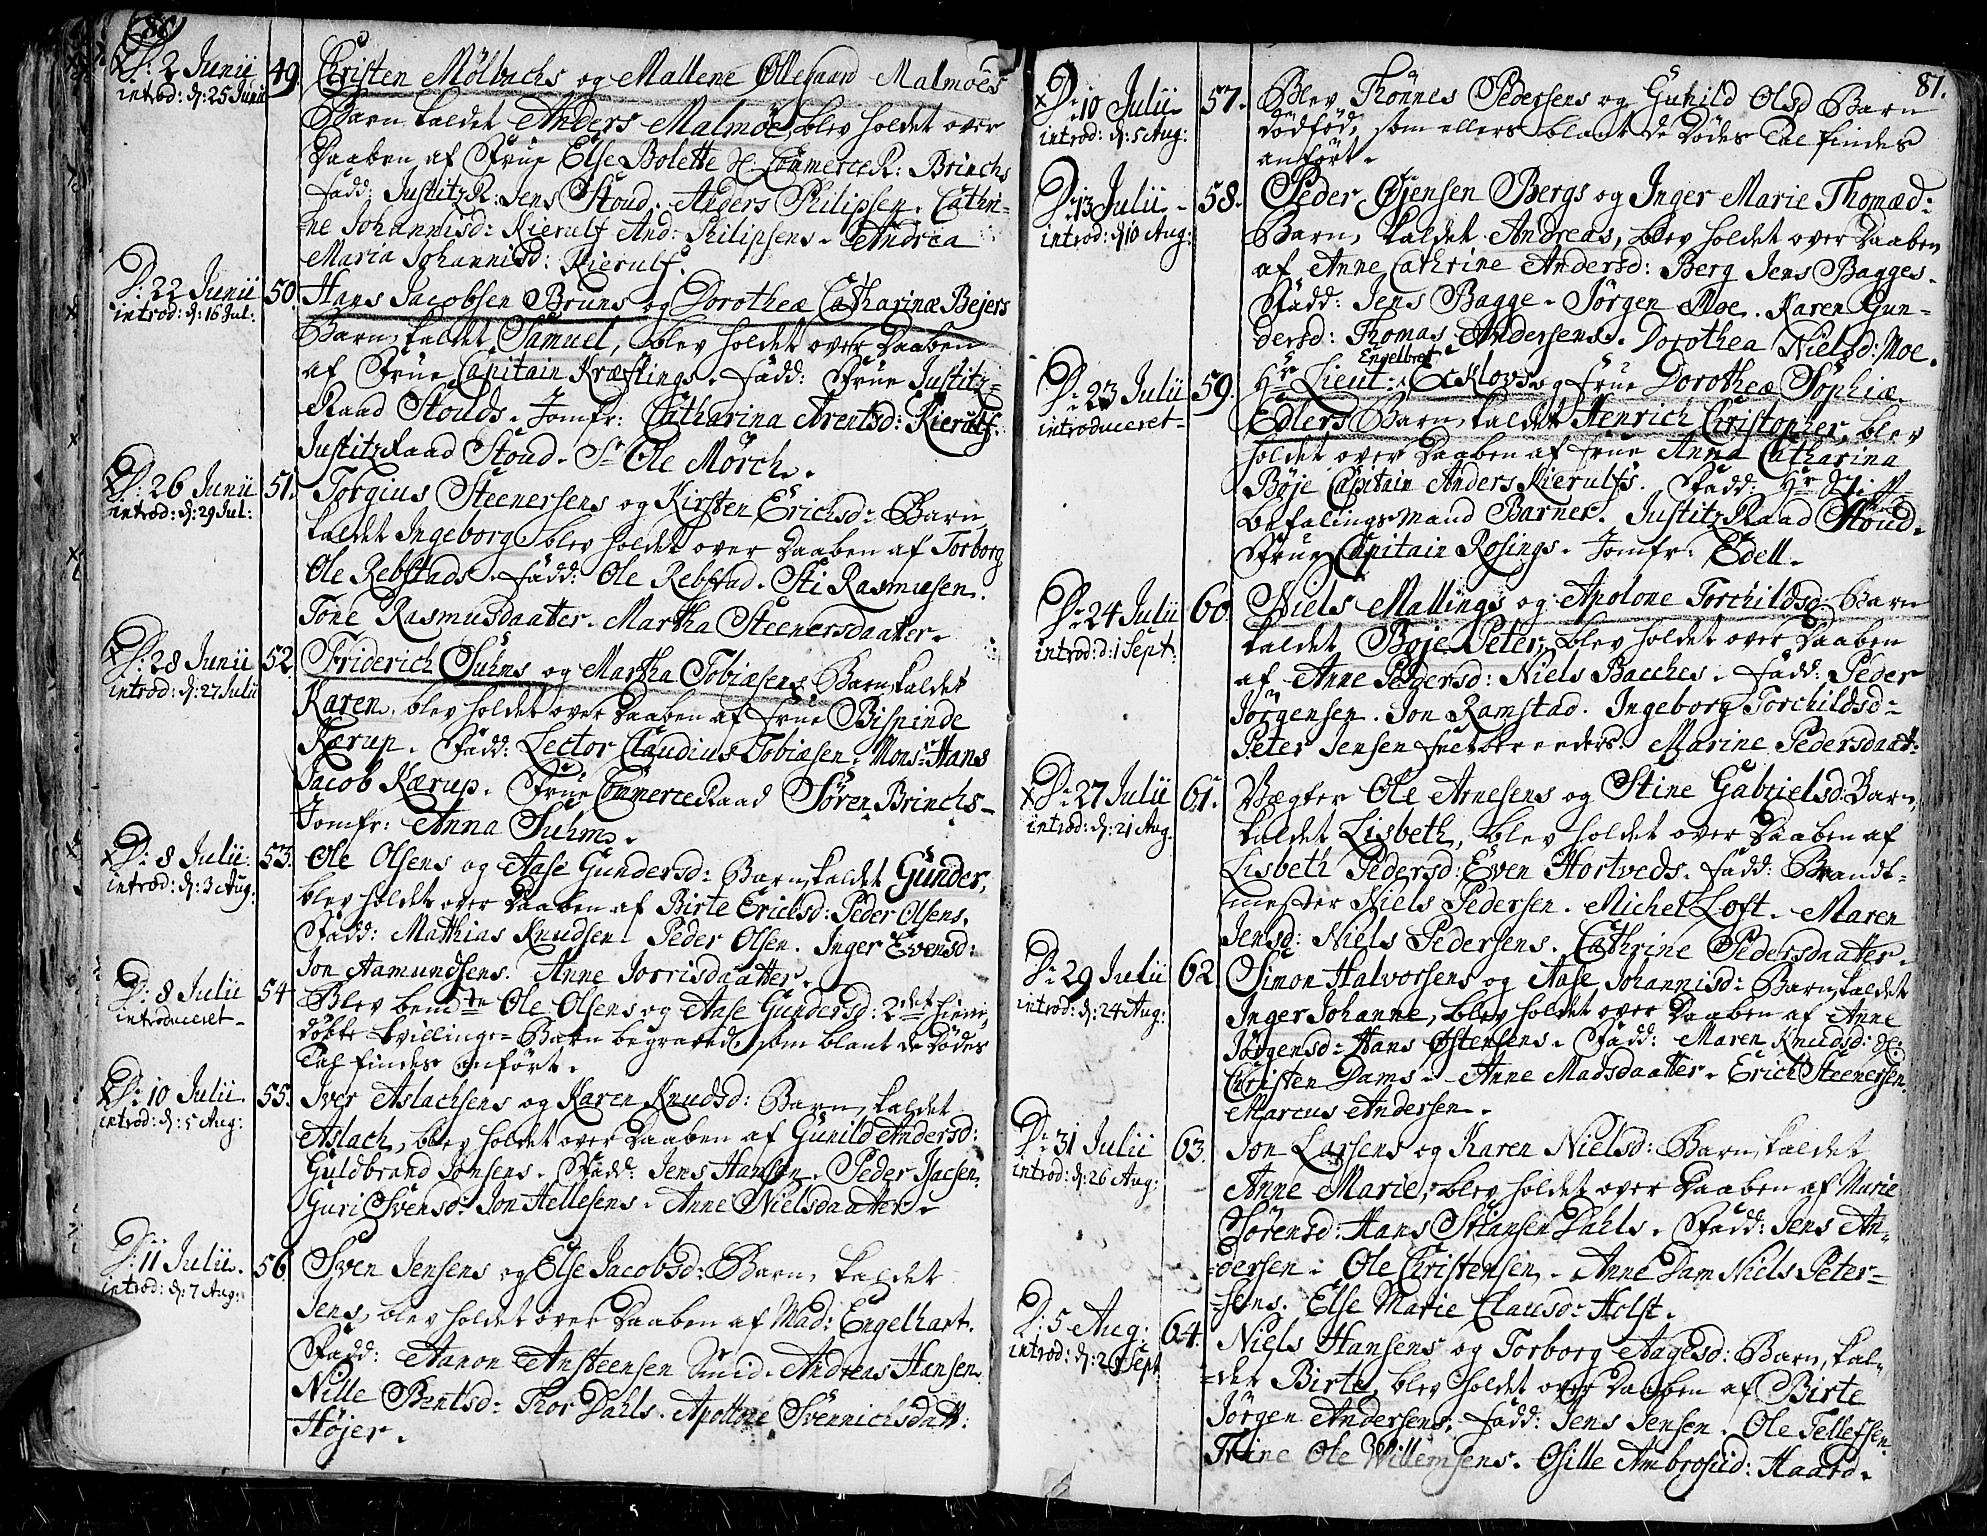 80
D: 2 Junii
introd: d: 25 Junii
49. Christen Mölbachs og Mallene Ollegaard Malmöes
Barn kaldet Anders Malmöe, blev holdet over
Daaben af Frue Else Bolette Sl. CommerceR: Brinchs
Fadd: JustitzR: Jens Stoud. Anders Philipsen. Cathri-
ne Johannisd: Kierulf And: Philipsens. Andrea
Maria Johannisd: Kierulf.
D: 22 Junii
introd: d: 16 Jul:
50. Hans Jacobsen Bruns og Dorotheæ Catharinæ Bejers
Barn, kaldet Samuel, blev holdet over Daaben
af Frue Capitain Kræftings. Fadd: Frue Justitz-
Raad Stouds. Jomfr: Catharina Arentsd: Kierulf.
JustitzRaad Stoud. Sr Ole Mörch.
D: 26 Junii
introd: d: 29 Jul:
51. Torgius Steenersens og Kirsten Erichsd: Barn
kaldet Ingeborg blev holdet over Daaben af Torborg
Ole Rebstads. Fadd: Ole Rebstad. Sti Rasmusen.
Tone Rasmusdaatter. Martha Steenersdaatter.
D: 28 Junii
introd: d: 27 Julii
52. Friderich Suhms og Martha Tobiæsens Barn, kaldet
Karen, blev holdet over Daaben af Frue Bispinde
Kærup. Fadd: Lector Claudius Tobiæsen. Monsr Hans
Jacob Kærup. Frue CommerceRaad Sören Brinchs-
Jomfr: Anna Suhm.
D: 8 Julii
introd: d: 3 Aug:
53. Ole Olsens og Aase Gundersd: Barn, kaldet Gunder,
blev holdet over Daaben af Birte Ericksd: Peder Olsens.
Fadd: Mathias Knudsen. Peder Olsen. Inger Evensd:
Jon Aamundsens. Anne Jorrisdaatter.
D: 8 Julii
introduceret-
54 Blev bemdte Ole Olsens og Aase Gundersd: 2det hieme
döbte Tvillinge-Barn begraved, som blant de Dödes
Tal findes anfört.
D: 10 Julii
introd: d: 5 Aug:
55. Iver Aslachsens og Karen Knudsd: Barn, kaldet
Aslach, blev holdet over Daaben af Gunild Andersd:
Guldbrand Jonsens. Fadd: Jens Hansen. Peder Isacsen.
Guri Svensd: Jon Hellesens. Anne Nielsdaatter.
D: 11 Julii
introd: d: 7 Aug:
56 Sven Jensens og Else Jacobsd: Barn, kaldet
Jens, blev holdet over Daaben af Mad: Engelhart.
Fadd: Aanon Ansteensen Smid. Andreas Hansen.
Nille Bentsd: Thor Dahls. Apollone Svennichsdatt:
Höjer.
81.
D: 10 Julii
introd: d: 5 Aug:
57. Blev Thönnes Pedersens og Gunild Olsd Barn
dödföd, som ellers blant de Dödes Tal findes
anfört.
D: 13 Julii
introd: d 10 Aug:
58. Peder Ojensen Bergs og Inger Marie Thomæd:
Barn, kaldet Andreas, blev holdet over Daaben
af Anne Cathrine Andersd: Berg Jens Bagges.
Fadd: Jens Bagge. Jörgen Moe. Karen Gun-
dersd: Thomas Andersens. Dorothea Nielsd: Moe.
D: 23 Julii
introduceret-
59. Hr Lieut: Engelbret Ecklovs og Frue Dorotheæ Sophiæ
Edlers Barn kaldet Henrich Christopher, blev
holdet over Daaben af Frue Anna Catharina
Böje Capitain Anders Kierulfs. Fadd: Hr Stift-
befalingsMand Barner. JustitzRaad Stoud.
Frue Capitain Rosings. Jomfr: Edell.
D: 24 Julii
introd: d: 1 Sept:
60. Niels Mallings og Apolone Torchildsd: Barn
kaldet Böje Peter, blev holdet over Daaben
af Anne Pedersd: Niels Bacches. Fadd: Peder
Jörgensen. Jon Ramstad. Ingeborg Torchildsd:
Peter Jensen . Marine Pedersdaatt:
D: 27 Julii
introd: d: 21 Aug.
61. Vægter Ole Arnesens og Stine Gabrielsd: Barn,
kaldet Lisbeth, blev holdet over Daaben af
Lisbeth Pedersd: Even Hortveds. Fadd: Brandt-
mester Niels Pedersen. Michel Loft. Maren
Jensd: Niels Pedersens. Cathrine Pedersdaatter.
D: 29 Julii
introd: d: 24 Aug:
62 Simon Halvorsens og Aase Johannisd: Barn, kaldet
Inger Johanne, blev holdet over Daaben af Anne
Jörgensd: Hans Östensens. Fadd: Maren Knudsd: Sl.
Christen Dams. Anne Madsdaatter. Erich Steenersen.
Marcus Andersen.
D: 31 Julii
introd: d: 26 Aug:
63. Jon Larsens og Karen Nielsd: Barn, kaldet
Anne Marie, blev holdet over Daaben af Marie
Sörensd: Hans Stiansen Dahls. Fadd: Jens An-
dersen. Ole Christensen. Anne Dam Niels Peter-
sens. Else Marie Clausd: Holst.
D: 5 Aug:
introd: d: Sept
64. Niels Hansens og Torborg Aagesd: Barn, kal-
det Birte, blev holdet over Daaben af Birte
Jörgen Andersens. Fadd: Jens Jensen. Ole Tellefsen
Trine Ole Willemsens. Osille Ambrosiid: Haard.